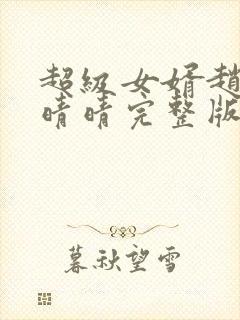 超級女婿趙
晴晴完整版
暮秋望雪